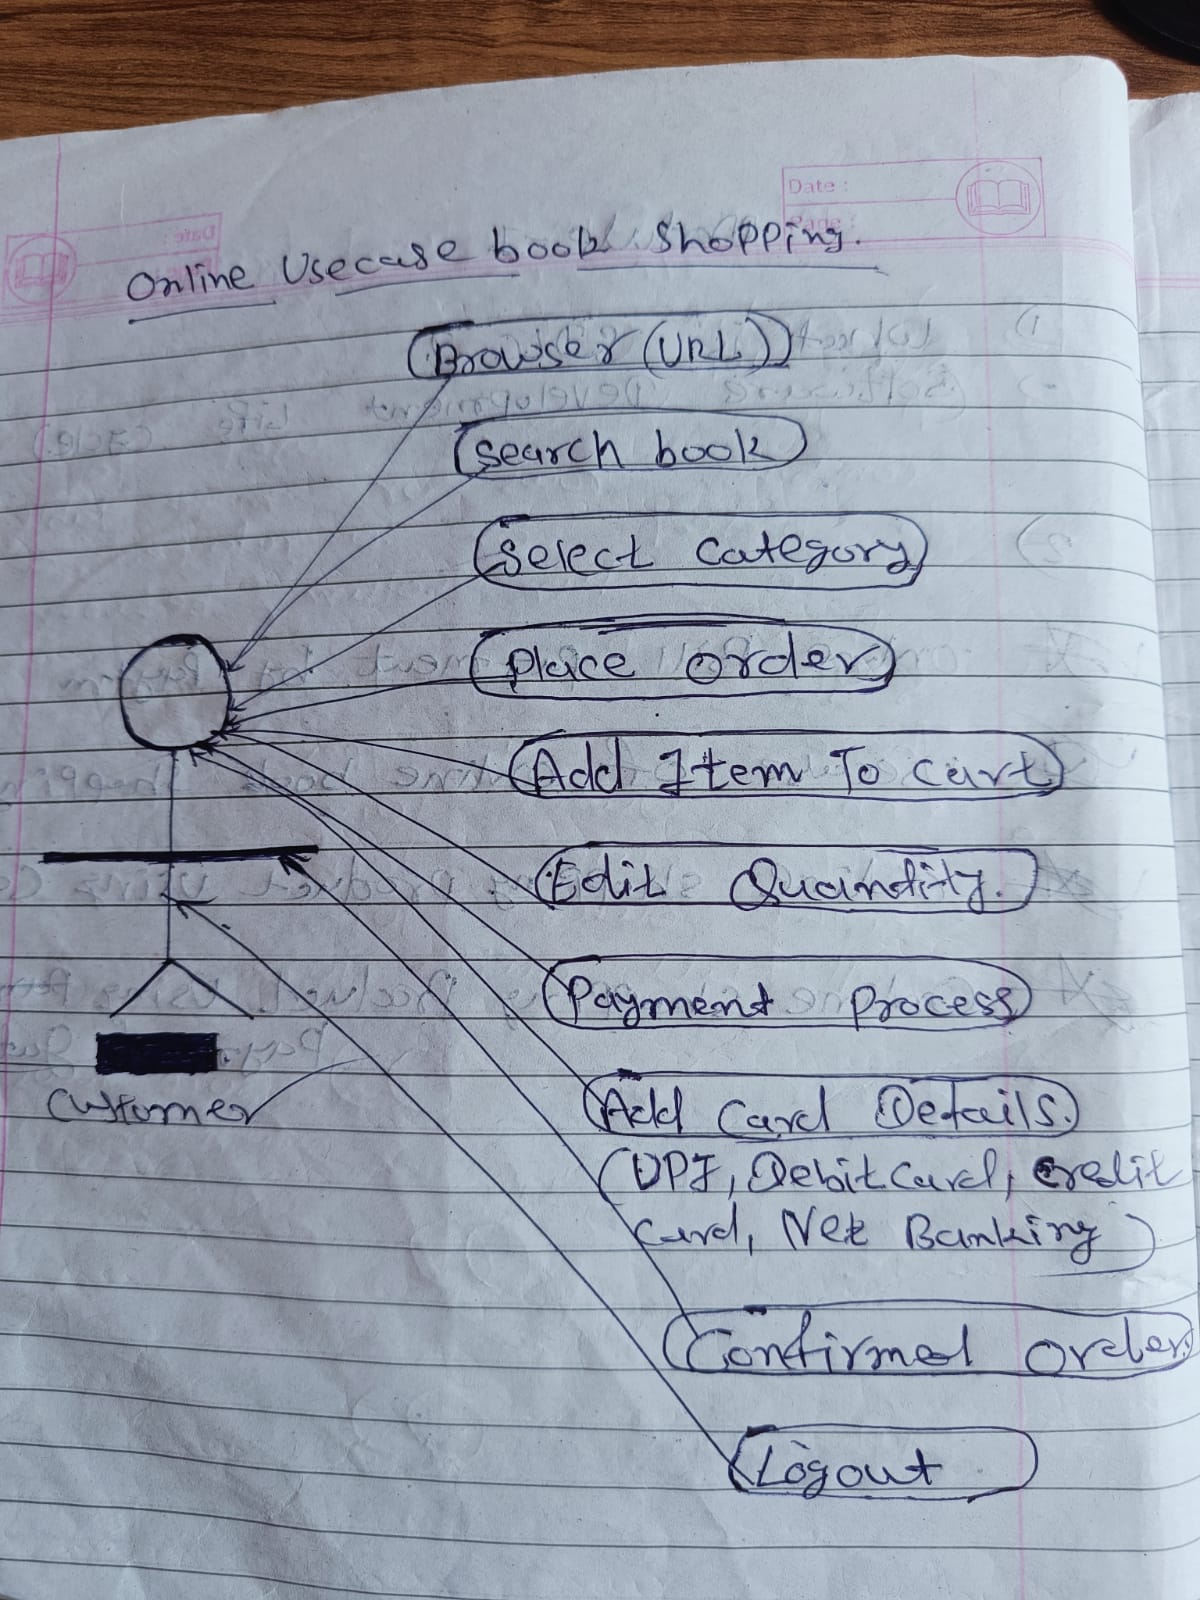 Date :
Page :
Online Usecase book Shopping.
Browser (URL)
Search book
Select Category
Place Order
Add Item To Cart
Edit Quantity.
Payment Process
Add Card Details.
(UPI, Debit Card, Credit
Card, Net Banking)
Customer
Confirmed Order
Logout